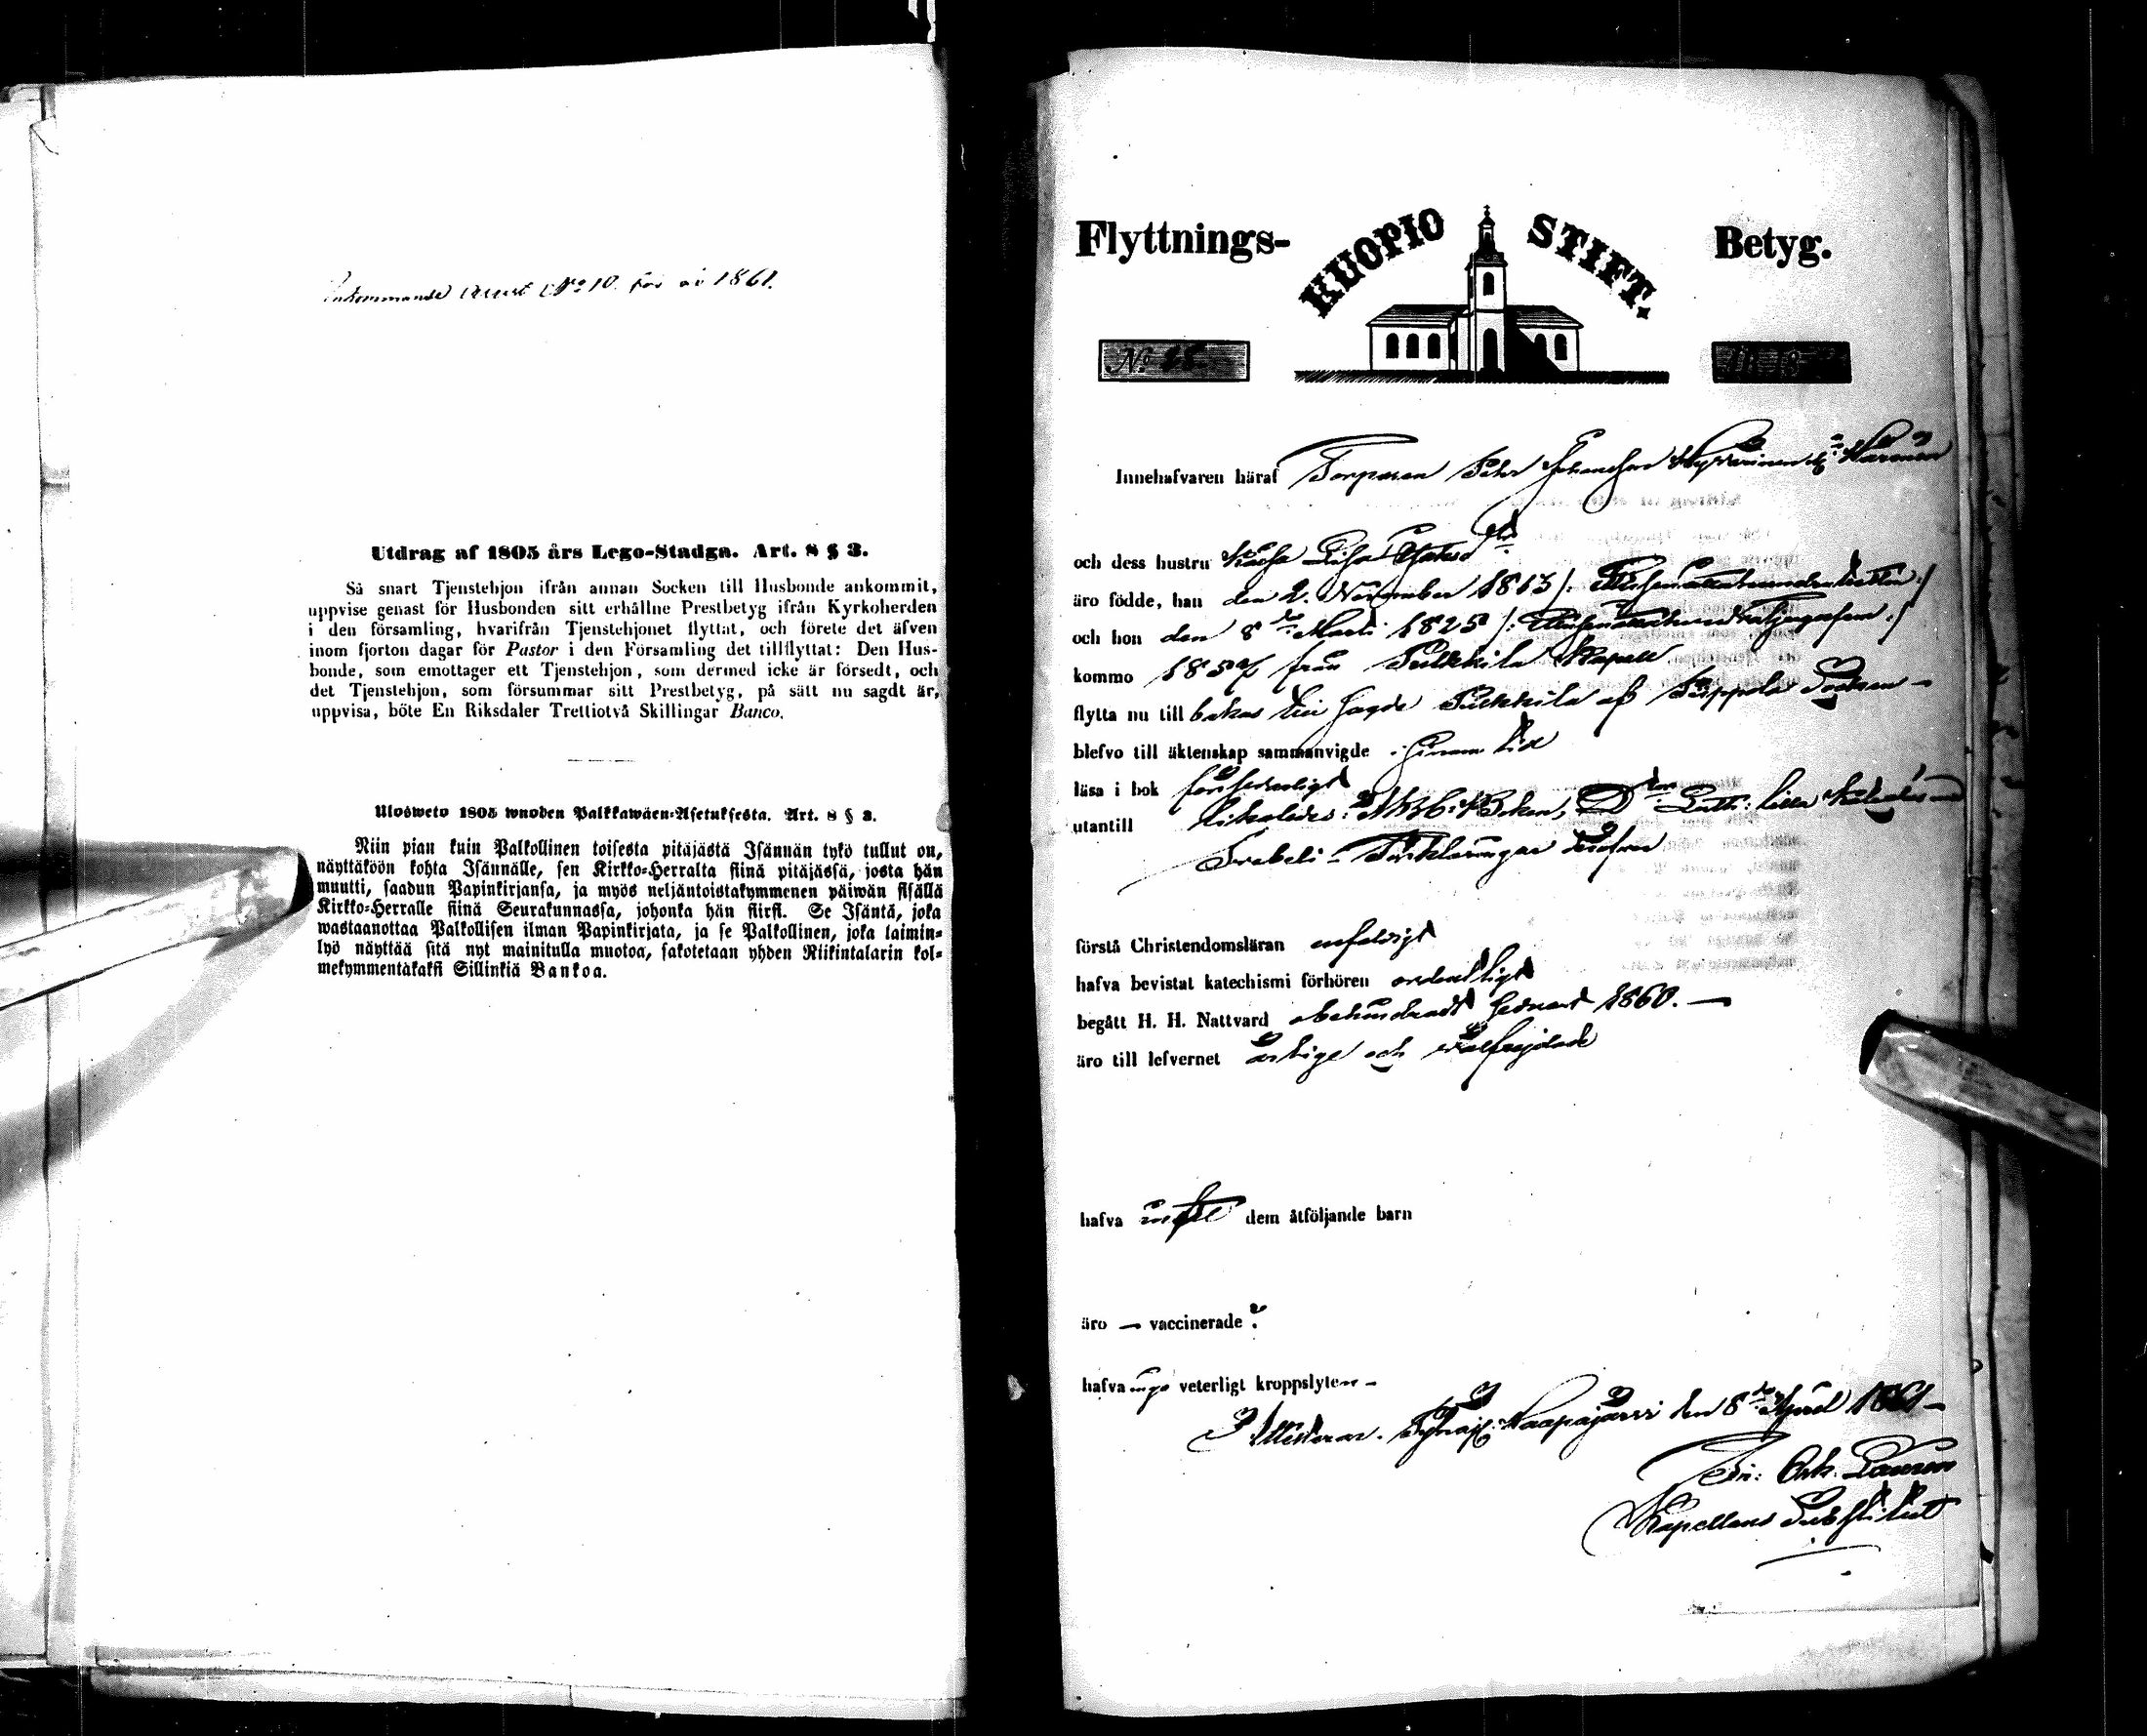 Inkommande Attest No 10. för år 1861.
Utdrag af 1805 års Lego-Stadga. Art. 8 § 3.
Så snart Tjenstehjon ifrån annan Socken till Husbonde ankommit,
uppvise genast för Husbonden sitt erhållne Prestbetyg ifrån Kyrkoherden
i den församling, hvarifrån Tjenstehjonet flyttat, och förete det äfven
inom fjorton dagar för Pastor i den Församling det tillflyttat: Den Hus-
bonde, som emottager ett Tjenstehjon, som dermed icke är försedt, och
det Tjenstehjon, som försummar sitt Prestbetyg, på sätt nu sagdt är,
uppvisa, böte En Riksdaler Trettiotvå Skillingar Banco.
Ulosweto 1805 wuoden Palkkawäen-Asetuksesta. Art. 8 § 3.
Niin pian kuin Palkollinen toisesta pitäjästä Isännän tykö tullut on,
näyttäköön kohta Isännälle, sen Kirkko-Herralta siinä pitäjässä, josta hän
muutti, saadun Papinkirjansa, ja myös neljäntoistakymmenen päiwän sisällä
Kirkko-Herralle siinä Seurakunnassa, johonka hän siirsi. Se Isäntä, joka
wastaanottaa Palkollisen ilman Papinkirjata, ja se Palkollinen, joka laimin-
lyö näyttää sitä nyt mainitulla muotoa, sakotetaan yhden Riikintalarin kol-
mekymmentäkaksi Sillinkiä Bankoa.
Flyttnings- KUOPIO STIFT. Betyg.
No
Innehafvaren häraf Torparen Petr Johansson Hyvärinen
och dess hustru Kaisa Lisa
äro födde, han den 2. November 1813
och hon den 8de Martii 1825
kommo från Pulkkila Kapell
flytta nu till bakas till sagde Pulkkila af Piippola Socken -
blefvo till äktenskap sammanvigde
läsa i bok försvarligt
utantill likaledes: ABC-Boken, Dr Luth: lilla
förstå Christendomsläran enfaldigt
hafva bevistat katechismi förhören ordentligt
begått H. H. Nattvard obehindradt senast 1860. —
äro till lefvernet ärlige och välfrejdade
hafva dem åtföljande barn
äro — vaccinerade ?
hafva inga veterligt kroppslyten -
Attesterar. Haapajärvi den 8de April 1861 -
Kapellans Substitut